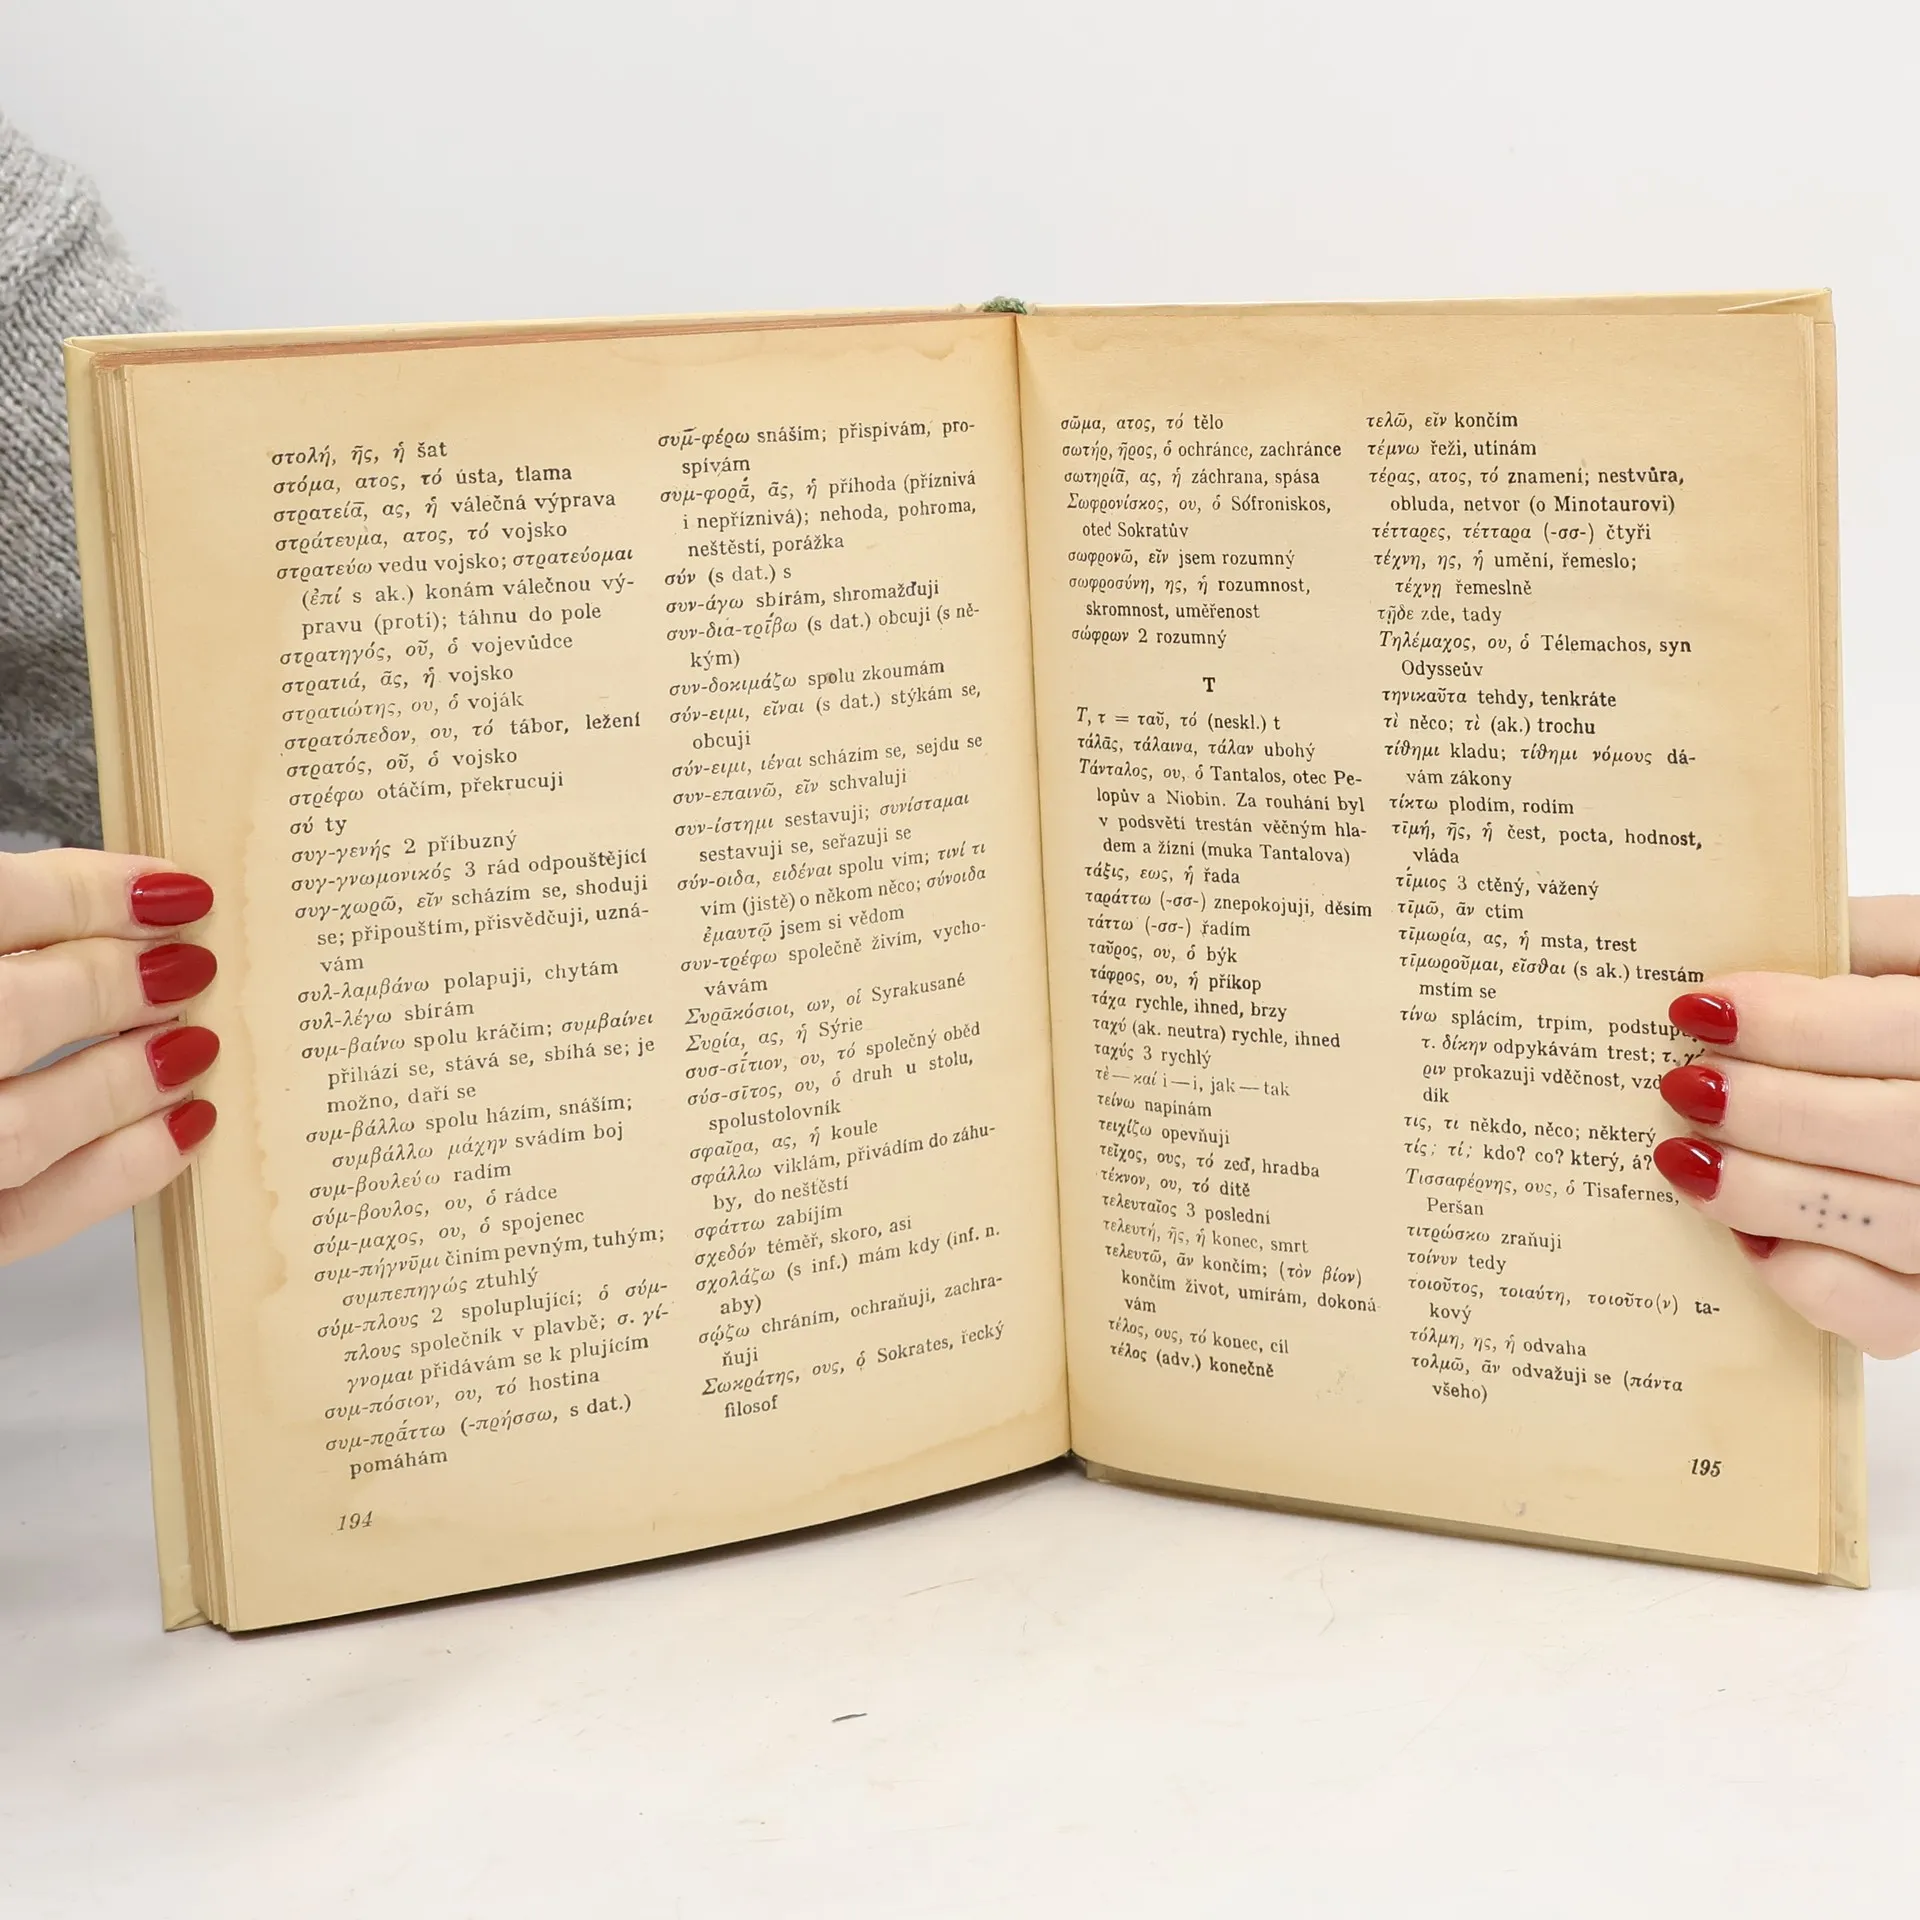 στολή, ῆς, ἡ šat
στόμα, ατος, τό ústa, tlama
στρατείᾱ, ας, ἡ válečná výprava
στράτευμα, ατος, τό vojsko
στρατεύω vedu vojsko; στρατεύομαι
(ἐπί s ak.) konám válečnou vý-
pravu (proti); táhnu do pole
στρατηγός, οῦ, ὁ vojevůdce
στρατιά, ᾶς, ἡ vojsko
στρατιώτης, ου, ὁ voják
στρατόπεδον, ου, τό tábor, ležení
στρατός, οῦ, ὁ vojsko
στρέφω otáčím, překrucuji
σύ ty
συγ-γενής 2 příbuzný
συγ-γνωμονικός 3 rád odpouštějící
συγ-χωρῶ, εῖν scházím se, shoduji
se; připouštím, přisvědčuji, uzná-
vám
συλ-λαμβάνω polapuji, chytám
συλ-λέγω sbírám
συμ-βαίνω spolu kráčím; συμβαίνει
přihází se, stává se, sbíhá se; je
možno, daří se
συμ-βάλλω spolu házím, snáším;
συμβάλλω μάχην svádím boj
συμ-βουλεύω radím
σύμ-βουλος, ου, ὁ rádce
σύμ-μαχος, ου, ὁ spojenec
συμ-πήγνῡμι činím pevným, tuhým;
συμπεπηγώς ztuhlý
σύμ-πλους 2 spoluplující; ὁ σύμ-
πλους společník v plavbě; σ. γί-
γνομαι přidávám se k plujícím
συμ-πόσιον, ου, τό hostina
συμ-πρᾱ́ττω (-πρήσσω, s dat.)
pomáhám
194
συμ-φέρω snáším; přispívám, pro-
spívám
συμ-φορᾱ́, ᾶς, ἡ příhoda (příznivá
i nepříznivá); nehoda, pohroma,
neštěstí, porážka
σύν (s dat.) s
συν-άγω sbírám, shromažďuji
συν-δια-τρῑ́βω (s dat.) obcuji (s ně-
kým)
συν-δοκιμάζω spolu zkoumám
σύν-ειμι, εἶναι (s dat.) stýkám se,
obcuji
σύν-ειμι, ιέναι scházím se, sejdu se
συν-επαινῶ, εῖν schvaluji
συν-ίστημι sestavuji; συνίσταμαι
sestavuji se, seřazuji se
σύν-οιδα, ειδέναι spolu vím; τινί τι
vím (jistě) o někom něco; σύνοιδα
ἐμαυτῷ jsem si vědom
συν-τρέφω společně živím, vycho-
vávám
Συρᾱκόσιοι, ων, οἱ Syrakusané
Συρία, ας, ἡ Sýrie
συσ-σῑ́τιον, ου, τό společný oběd
σύσ-σῑτος, ου, ὁ druh u stolu,
spolustolovník
σφαῖρα, ας, ἡ koule
σφάλλω viklám, přivádím do záhu-
by, do neštěstí
σφάττω zabíjím
σχεδόν téměř, skoro, asi
σχολάζω (s inf.) mám kdy (inf. n.
aby)
σῴζω chráním, ochraňuji, zachra-
ňuji
Σωκράτης, ους, ὁ Sokrates, řecký
filosof
σῶμα, ατος, τό tělo
σωτήρ, ῆρος, ὁ ochránce, zachránce
σωτηρίᾱ, ας, ἡ záchrana, spása
Σωφρονίσκος, ου, ὁ Sófroniskos,
otec Sokratův
σωφρονῶ, εῖν jsem rozumný
σωφροσύνη, ης, ἡ rozumnost,
skromnost, uměřenost
σώφρων 2 rozumný
T
Τ, τ = ταῦ, τό (neskl.) t
τάλᾱς, τάλαινα, τάλαν ubohý
Τάνταλος, ου, ὁ Tantalos, otec Pe-
lopův a Niobin. Za rouhání byl
v podsvětí trestán věčným hla-
dem a žízní (muka Tantalova)
τάξις, εως, ἡ řada
ταράττω (-σσ-) znepokojuji, děsím
τάττω (-σσ-) řadím
ταῦρος, ου, ὁ býk
τάφρος, ου, ἡ příkop
τάχα rychle, ihned, brzy
ταχύ (ak. neutra) rychle, ihned
ταχύς 3 rychlý
τὲ — καί i — i, jak — tak
τείνω napínám
τειχίζω opevňuji
τεῖχος, ους, τό zeď, hradba
τέκνον, ου, τό dítě
τελευταῖος 3 poslední
τελευτή, ῆς, ἡ konec, smrt
τελευτῶ, ᾶν končím; (τὸν βίον)
končím život, umírám, dokoná-
vám
τέλος, ους, τό konec, cíl
τέλος (adv.) konečně
τελῶ, εῖν končím
τέμνω řeži, utínám
τέρας, ατος, τό znamení; nestvůra,
obluda, netvor (o Minotaurovi)
τέτταρες, τέτταρα (-σσ-) čtyři
τέχνη, ης, ἡ umění, řemeslo;
τέχνῃ řemeslně
τῇδε zde, tady
Τηλέμαχος, ου, ὁ Télemachos, syn
Odysseův
τηνικαῦτα tehdy, tenkráte
τὶ něco; τὶ (ak.) trochu
τίθημι kladu; τίθημι νόμους dá-
vám zákony
τίκτω plodím, rodím
τῑμή, ῆς, ἡ čest, pocta, hodnost,
vláda
τῑ́μιος 3 ctěný, vážený
τῑμῶ, ᾶν ctím
τῑμωρία, ας, ἡ msta, trest
τῑμωροῦμαι, εῖσθαι (s ak.) trestám
mstím se
τίνω splácím, trpím,
τ. δίκην odpykávám trest; τ.
ριν prokazuji vděčnost,
dík
τις, τι někdo, něco; některý
τίς; τί; kdo? co? který, á?
Τισσαφέρνης, ους, ὁ Tisafernes,
Peršan
τιτρώσκω zraňuji
τοίνυν tedy
τοιοῦτος, τοιαύτη, τοιοῦτο(ν) ta-
kový
τόλμη, ης, ἡ odvaha
τολμῶ, ᾶν odvažuji se (πάντα
všeho)
195